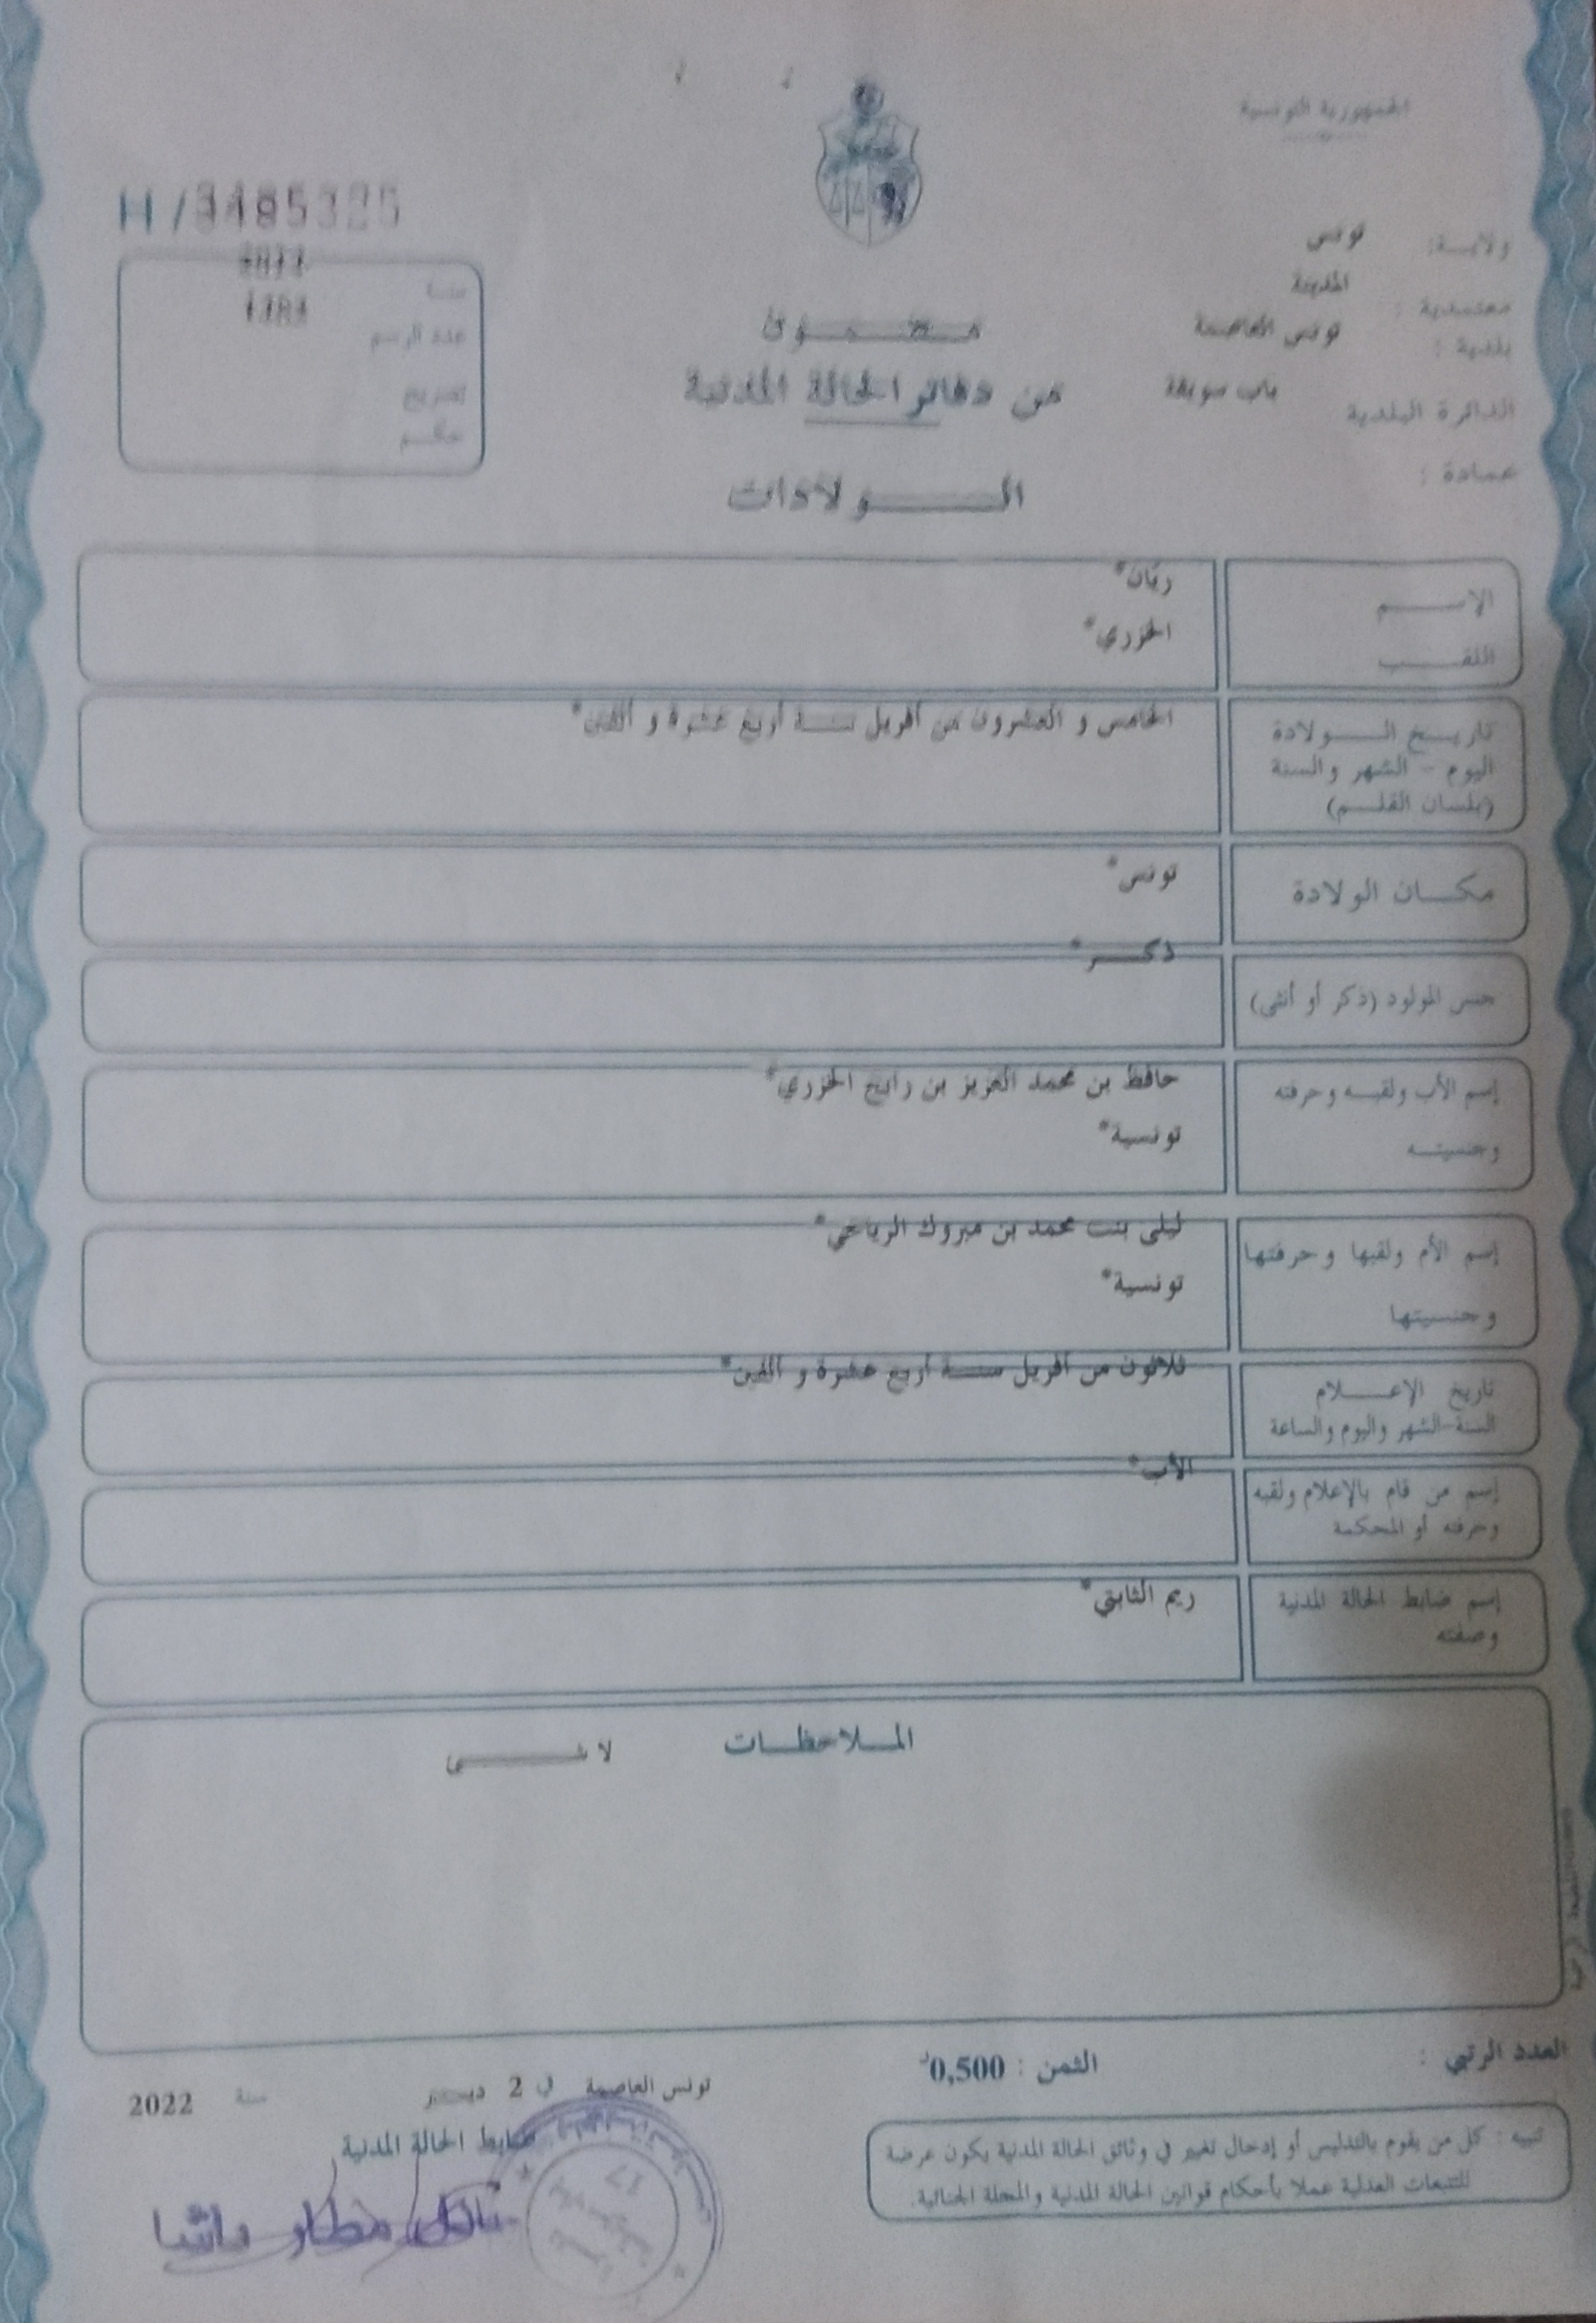 الجمهورية التونسية
ولايـــة: تونس
معتمدية : المدينة
بلدية : تونس العاصمة
الدائرة البلدية باب سويقة
عمادة :
H/3485325
سنــة
عدد الرسم
تصريح
حكــم
مـضـمـــون
من دفاتر الحالة المدنية
الـــــولادات
الإســــم ريّان*
اللقــــب الخزري*
تاريــخ الـــولادة الخامس و العشرون من أفريل ســـنـة أربع عشرة و ألفين*
اليوم - الشهر والسنة
(بلسان القلـــم)
مكـــان الولادة تونس*
جنس المولود (ذكر أو أنثى) ذكـــر*
إسم الأب ولقبـــه وحرفته حافظ بن محمد العزيز بن رابح الخزري*
وجنسيتـــه تونسية*
إسم الأم ولقبها وحرفتها ليلى بنت محمد بن مبروك الرياحي*
وجنسيتها تونسية*
تاريخ الإعـــلام ثلاثون من أفريل ســـنـة أربع عشرة و ألفين*
السنة-الشهر واليوم والساعة
إسم من قام بالإعلام ولقبه الأب*
وحرفته أو المحكمة
إسم ضابط الحالة المدنية ريم الثابتي*
وصفته
المــلاحظــات لا شـــــئ
العدد الرتبي :
الثمن : 0,500د
تونس العاصمة في 2 ديسمبر سنة 2022
ضابط الحالة المدنية
تنبيه : كل من يقوم بالتدليس أو إدخال تغيير في وثائق الحالة المدنية يكون عرضة
للتتبعات العدلية عملا بأحكام قوانين الحالة المدنية والمجلة الجنائية.
17